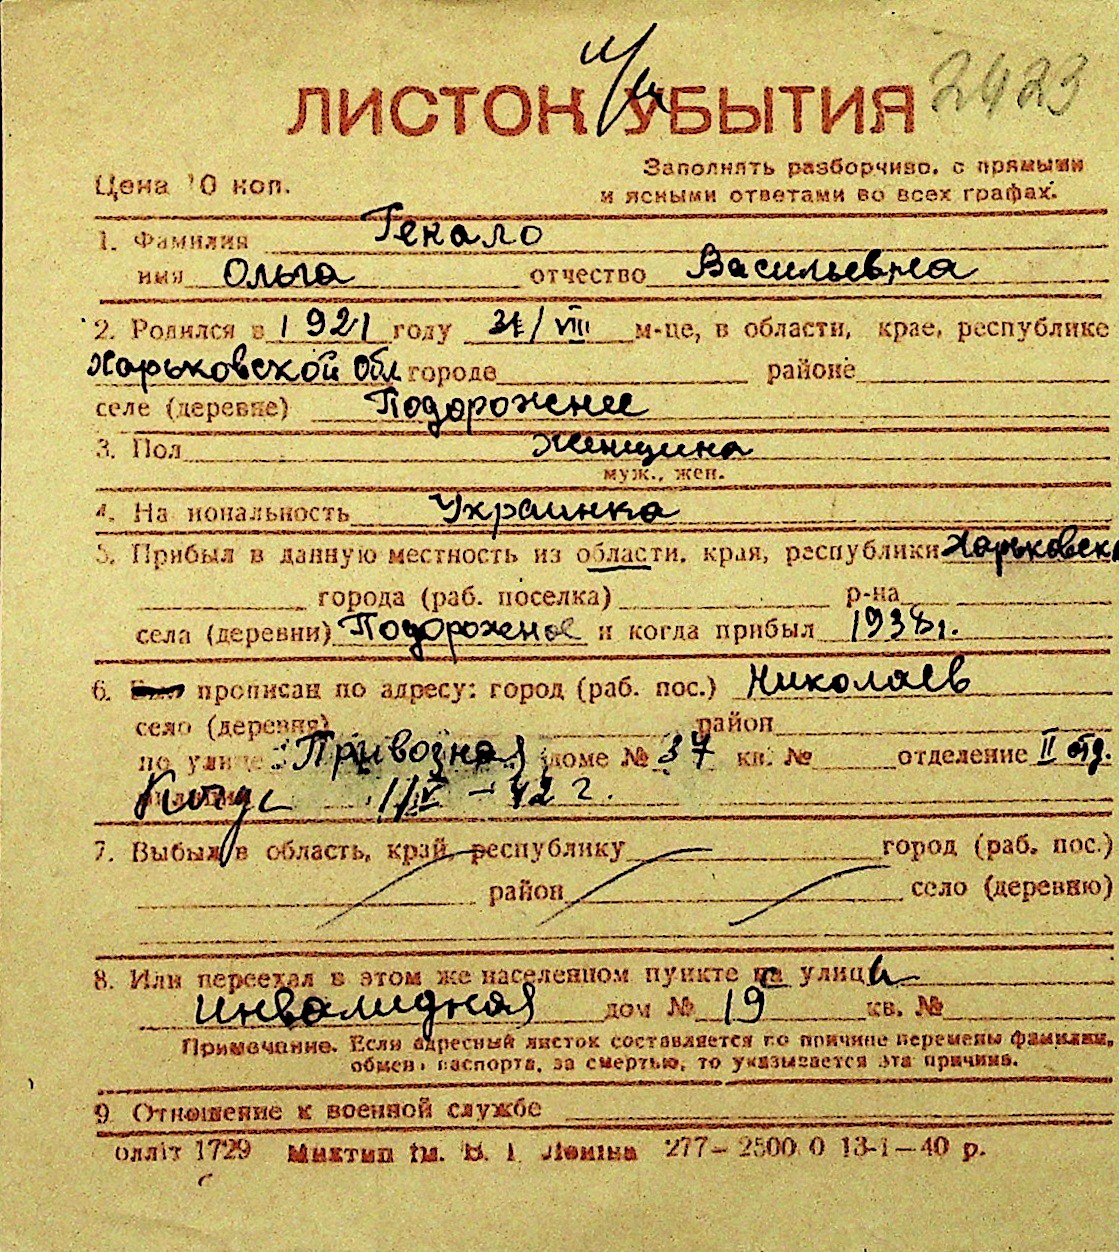 2423
ЛИСТОК УБЫТИЯ
Цена 10 коп.
Заполнять разборчиво, с прямыми
и ясными ответами во всех графах.
1. Фамилия Гекало
имя Ольга отчество Васильевна
2. Родился в 1921 году 21/VIII м-це, в области, крае, республике
Харьковской обл городе районе
селе (деревне) Подорожнее
3. Пол Женщина
муж., жен.
4. На иональность Украинка
5. Прибыл в данную местность из области, края, республики Харьковск
города (раб. поселка) р-на
села (деревни) Подорожное и когда прибыл 1938г.
6. прописан по адресу: город (раб. пос.) Николаев
село (деревня) район
по улице Привозная доме № 37 кв. № отделение II отд.
1/IV - 42 г.
7. Выбыл в область, край, республику город (раб. пос.)
район село (деревню)
8. Или переехал в этом же населенном пункте на улицу
Инвалидная дом № 19 кв. №
Примечание. Если адресный листок составляется по причине перемены фамилии,
обмена паспорта, за смертью, то указывается эта причина.
9. Отношение к военной службе
олліт 1729 Миктип ім. В. І Леніна 277–2500 0 13-1–40 р.